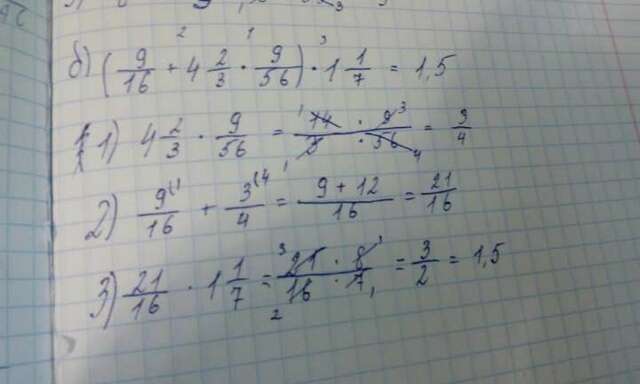 б) (9/16 + 4 2/3 · 9/56) · 1 1/7 = 1,5
1) 4 2/3 · 9/56 = 14 · 9 / 3 · 56 = 3/4
2) 9/16 + 3/4 = 9 + 12 / 16 = 21/16
3) 21/16 · 1 1/7 = 21 · 8 / 16 · 7 = 3/2 = 1,5